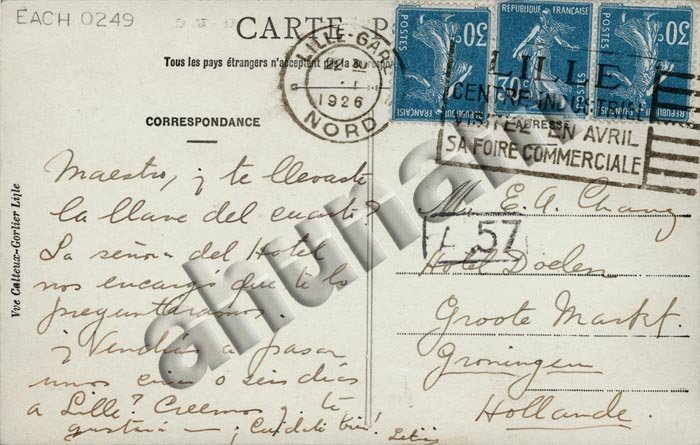 EACH 0249
CARTE P
Tous les pays étrangers n'acceptent pas la
CORRESPONDANCE
ADRESSE
LILLE-GARE
22 3
1926
NORD
30 POSTES RÉPUBLIQUE FRANÇAISE
RÉPUBLIQUE FRANÇAISE 30 POSTES
30 POSTES RÉPUBLIQUE FRANÇAISE
LILLE
CENTRE INDUSTRIEL
VISITEZ EN AVRIL
SA FOIRE COMMERCIALE
Vve Calteux-Gorlier Lille
Maestro, ¿ te llevaste
la llave del cuarto?
La señora del Hotel
nos encargó que te lo
preguntáramos.
¿ Vendrás a pasar
unos cinco o seis días
a Lille? Creemos te
gustará — ¡ Cuídate bien!
E. A. Chavez
57
Hotel Doelen
Groote Markt.
Groningen
Hollande.
ahunam